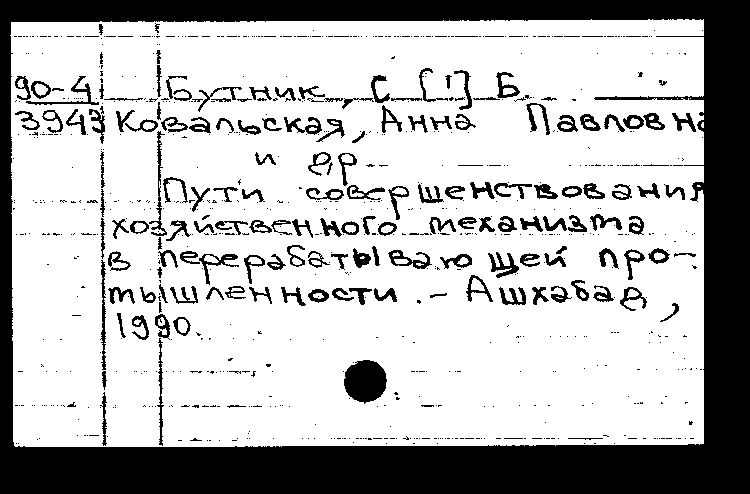 90-4 Бутник, С [!] Б.
3943 Ковальская, Анна Павловна
и др
Пути совершенствования
хозяйственного механизма
в перерабатывающей про-
мышленности. - Ашхабад,
1990.